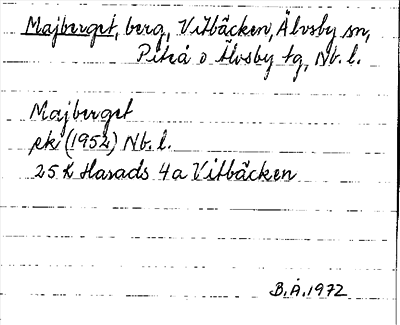 Majberget, berg, Vitbäcken, Älvsby sn,
Piteå o Älvsby tg, Nb. l.
Majberget
ek (1952) Nb. l.
25 K Harads 4a Vitbäcken
B.Å. 1972